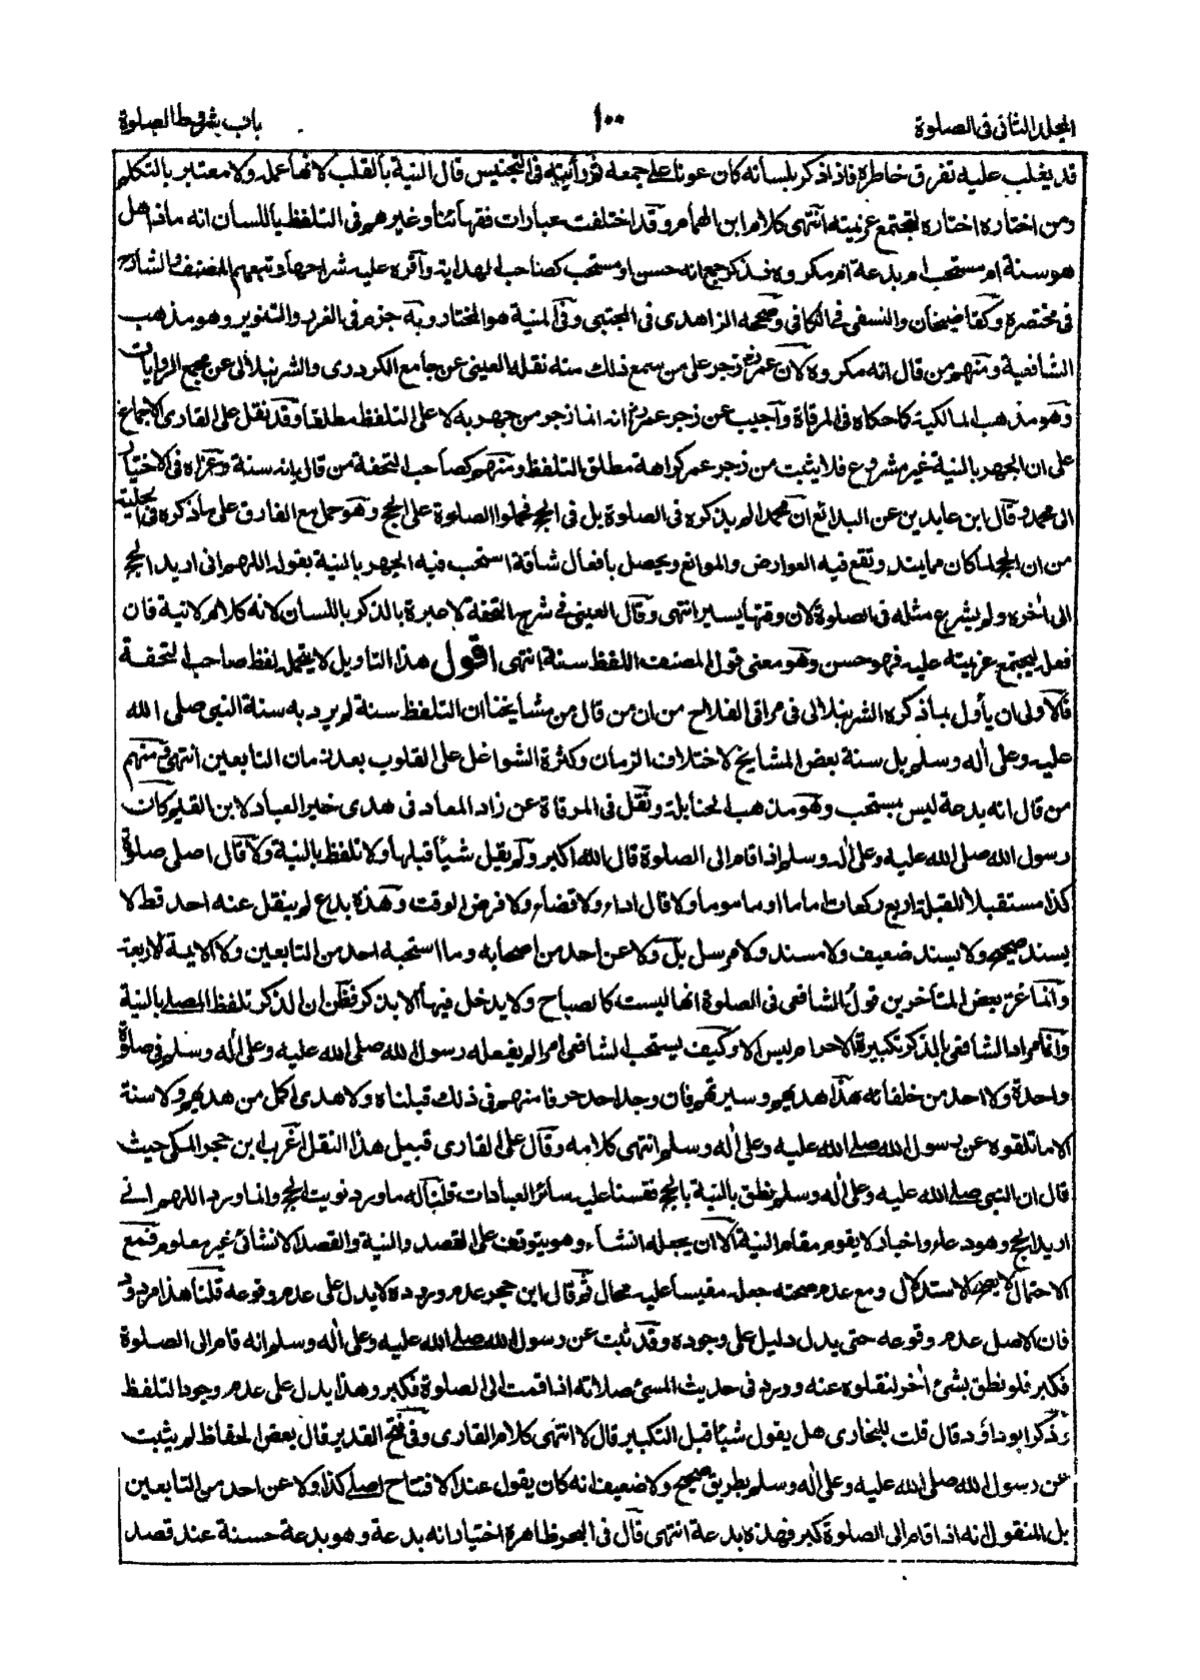 المجلد الثانی فی الصلوة
١٠٠
باب شروط الصلوة
قد یغلب علیه تفرق خاطره فاذا ذکر بلسانه کان عونا علی جمعه ثم رأیته فی التجنیس قال النیة بالقلب لانها عمله ولا معتبر بالتکلم
ومن اختاره اختاره لتجتمع عزیمته انتهی کلام ابن الهمام وقد اختلفت عبارات فقهائنا وغیرهم فی التلفظ باللسان انه ماذا هل
هو سنة ام مستحب ام بدعة ام مکروه فذکر جمع انه حسن او مستحب کصاحب الهدایة واقره علیه شراحها وتبعهم المصنف والشارح
فی مختصره وکقاضیخان والنسفی فی الکافی وصححه الزاهدی فی المجتبی وفی المنیة هو المختار وبه جزم فی الغرر والتنویر وهو مذهب
الشافعیة ومنهم من قال انه مکروه لان عمر زجر علی من سمع ذلک منه نقله العینی عن جامع الکردری والشرنبلالی عن مجمع الروایات
وهو مذهب المالکیة کما حکاه فی المرقاة واجیب عن زجر عمر انه انما زجر من جهر به لا علی التلفظ مطلقا وقد نقل علی القاری الاجماع
علی ان الجهر بالنیة غیر مشروع فلا یثبت من زجر عمر کراهة مطلق التلفظ ومنهم کصاحب التحفة من قال بانه سنة وعزاه فی الاختیار
الی محمد وقال ابن عابدین عن البدائع ان محمدا لم یذکره فی الصلوة بل فی الحج فحملوا الصلوة علی الحج وهو حمل مع الفارق علی ما ذکره فی الحلیة
من ان الحج لما کان مما یمتد وتقع فیه العوارض والموانع ویحصل بافعال شاقة استحب فیه الجهر بالنیة بقوله اللهم انی ارید الحج
الی آخره ولم یشرع مثله فی الصلوة لان وقتها یسیر انتهی وقال العینی فی شرح التحفة لا عبرة بالذکر باللسان لانه کلام لا نیة فان
فعل لیجتمع عزیمته علیه فهو حسن وهو معنی قول المصنف اللفظ سنة انتهی اقول هذا التاویل لا یحتمله لفظ صاحب التحفة
فالاولی ان یأول بما ذکره الشرنبلالی فی مراقی الفلاح من ان من قال من مشایخنا ان التلفظ سنة لم یرد به سنة النبی صلی الله
علیه وعلی اله وسلم بل سنة بعض المشایخ لاختلاف الزمان وکثرة الشواغل علی القلوب بعد زمان التابعین انتهی ومنهم
من قال انه بدعة لیس بمستحب وهو مذهب الحنابلة ونقل فی المرقاة عن زاد المعاد فی هدی خیر العباد لابن القیم کان
رسول الله صلی الله علیه وعلی اله وسلم اذا قام الی الصلوة قال الله اکبر ولم یقل شیأ قبلها ولا تلفظ بالنیة ولا قال اصلی صلوة
کذا مستقبلا للقبلة اربع رکعات اماما او ماموما ولا قال اداء ولا قضاء ولا فرض الوقت وهذه بدع لم ینقل عنه احد قط لا
بسند صحیح ولا بسند ضعیف ولا مسند ولا مرسل بل ولا عن احد من اصحابه وما استحبه احد من التابعین ولا الایمة الاربعة
وانما غر بعض المتأخرین قول الشافعی فی الصلوة انها لیست کالصیام ولا یدخل فیها الا بذکر فظن ان الذکر تلفظ المصلی بالنیة
وانما مراد الشافعی بالذکر تکبیرة الاحرام لیس الا وکیف یستحب الشافعی امرا لم یفعله رسول الله صلی الله علیه وعلی اله وسلم فی صلوة
واحدة ولا احد من خلفائه هذا هدیهم وسیرتهم فان وجد احد حرفا منهم فی ذلک قبلناه ولا هدی اکمل من هدیهم ولا سنة
الا ما تلقوه عن رسول الله صلی الله علیه وعلی اله وسلم انتهی کلامه وقال علی القاری قبیل هذا النقل اغرب ابن حجر المکی حیث
قال ان النبی صلی الله علیه وعلی اله وسلم نطق بالنیة بالحج فقسنا علیه سائر العبادات قلنا له ما ورد نویت الحج وانما ورد اللهم انی
ارید الحج وهو دعاء واخبار لا یقوم مقام النیة الا ان یجعله انشاء وهو یتوقف علی القصد والنیة والقصد الانشائی غیر معلوم فمع
الاحتمال لا یصح الاستدلال ومع عدم صحته جعله مقیسا علیه محال ثم قال ابن حجر عدم وروده لا یدل علی عدم وقوعه قلنا هذا مردود
فان الاصل عدم وقوعه حتی یدل دلیل علی وجوده وقد ثبت عن رسول الله صلی الله علیه وعلی اله وسلم انه قام الی الصلوة
فکبر فلو نطق بشئ اخر لنقلوه عنه وورد فی حدیث المسئ صلاته اذا قمت الی الصلوة فکبر وهذا یدل علی عدم وجود التلفظ
وذکر ابو داؤد قال قلت للبخاری هل یقول شیئا قبل التکبیر قال لا انتهی کلام القاری وفی فتح القدیر قال بعض الحفاظ لم یثبت
عن رسول الله صلی الله علیه وعلی اله وسلم بطریق صحیح ولا ضعیف انه کان یقول عند الافتتاح اصلی کذا ولا عن احد من التابعین
بل المنقول انه اذا قام الی الصلوة کبر فهذه بدعة انتهی قال فی البحر ظاهره اختیار انه بدعة وهو بدعة حسنة عند قصد